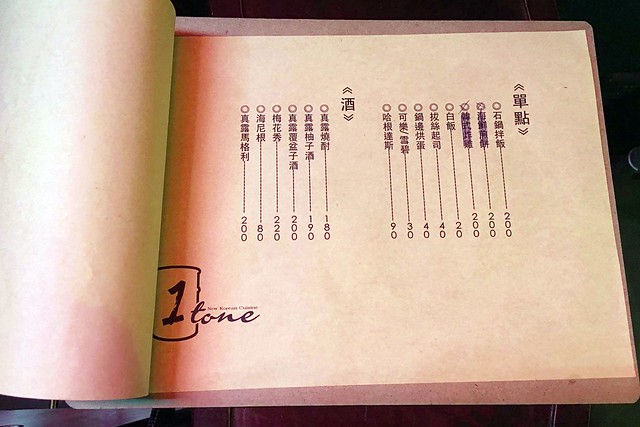 《單點》
◎石鍋拌飯 200
◎海鮮煎餅 200
◎韓式炸雞 200
◎白飯 20
◎拔絲起司 40
◎鍋邊烘蛋 40
◎可樂/雪碧 30
◎哈根達斯 90
《酒》
◎真露燒酎 180
◎真露柚子酒 190
◎真露覆盆子酒 200
◎梅花秀 220
◎海尼根 80
◎真露馬格利 200
New Korean Cuisine
1tone